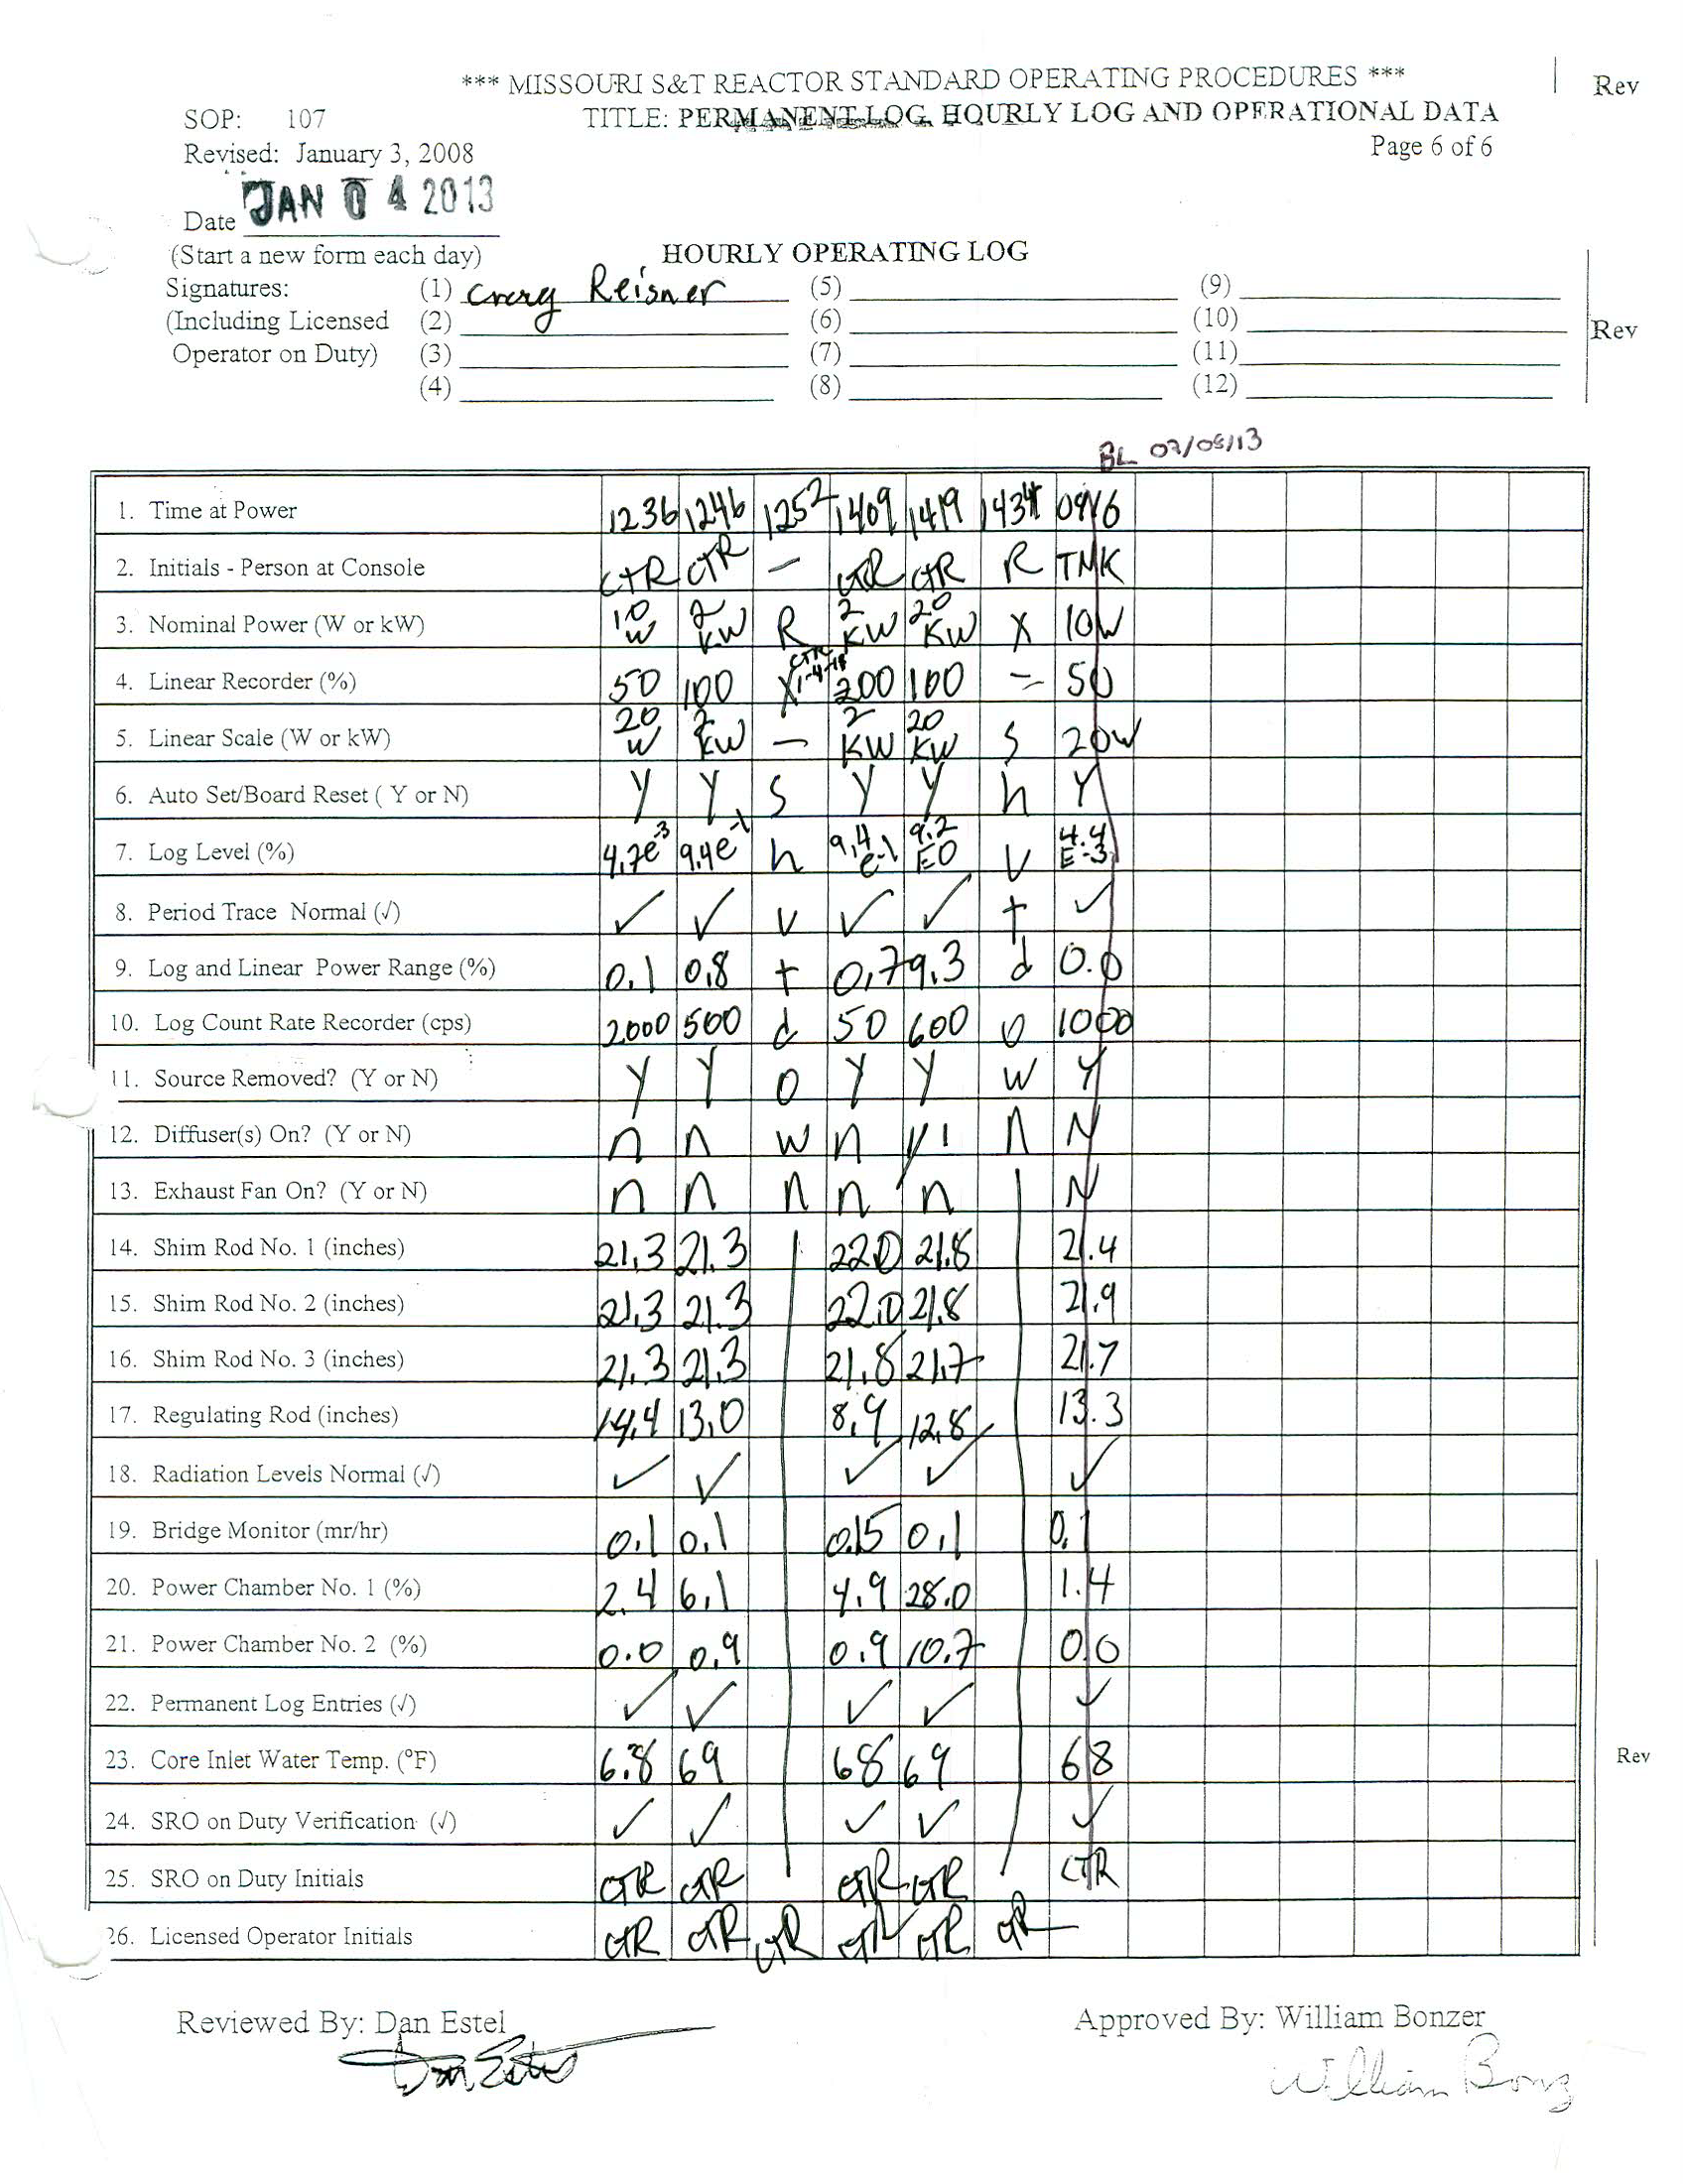 *** MISSOURI S&T REACTOR STANDARD OPERATING PROCEDURES *** Rev
SOP: 107 TITLE: PERMANENT LOG, HOURLY LOG AND OPERATIONAL DATA
Revised: January 3, 2008 Page 6 of 6
Date JAN 04 2013
(Start a new form each day) HOURLY OPERATING LOG
Signatures: (1) Reisner (5) (9)
(Including Licensed (2) (6) (10) Rev
Operator on Duty) (3) (7) (11)
(4) (8) (12)
BL
1. Time at Power 1236 1246 1252 1409 1419 1434
2. Initials - Person at Console CTR CTR — CTR CTR R TMK
3. Nominal Power (W or kW) 10 W 2 KW R 2 KW 20 KW X 10W
4. Linear Recorder (%) 50 100 200 100 50
5. Linear Scale (W or kW) 20 W 2 KW — 2 KW 20 KW S 20W
6. Auto Set/Board Reset ( Y or N) Y Y S Y Y h Y
7. Log Level (%) 4.7e-3 9.4e-1 h 9.4 e-1 9.2 E0 U 4.4 E-3
8. Period Trace Normal (√) ✓ ✓ U ✓ ✓ t ✓
9. Log and Linear Power Range (%) 0.1 0.8 t 0.7 9.3 d 0.0
10. Log Count Rate Recorder (cps) 2000 500 d 50 600 o 1000
11. Source Removed? (Y or N) Y Y o Y Y w Y
12. Diffuser(s) On? (Y or N) n n w n n N
13. Exhaust Fan On? (Y or N) n n n n n N
14. Shim Rod No. 1 (inches) 21.3 21.3 22.0 21.8 21.4
15. Shim Rod No. 2 (inches) 21.3 21.3 22.0 21.8 21.9
16. Shim Rod No. 3 (inches) 21.3 21.3 21.8 21.7 21.7
17. Regulating Rod (inches) 14.4 13.0 8.9 12.8 13.3
18. Radiation Levels Normal (√) ✓ ✓ ✓ ✓ ✓
19. Bridge Monitor (mr/hr) 0.1 0.1 0.15 0.1 0.1
20. Power Chamber No. 1 (%) 2.4 6.1 4.9 28.0 1.4
21. Power Chamber No. 2 (%) 0.0 0.9 0.9 10.7 0.0
22. Permanent Log Entries (√) ✓ ✓ ✓ ✓ ✓
23. Core Inlet Water Temp. (°F) 6.8 69 68 69 68 Rev
24. SRO on Duty Verification (√) ✓ ✓ ✓ ✓ ✓
25. SRO on Duty Initials CTR CTR CTR CTR CTR
26. Licensed Operator Initials CTR CTR CTR CTR CTR CTR
Reviewed By: Dan Estel Approved By: William Bonzer
Dan Estel William Bonz